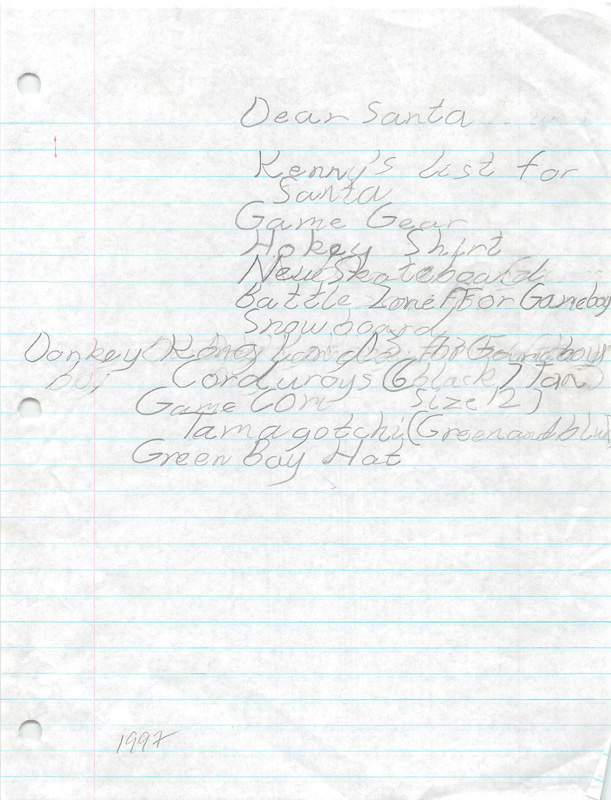 Dear Santa
Kenny's list for
Santa
Game Gear
Hokey Shirt
New Skateboard
Battle Zone For Gameboy
Snowboard
Donkey Kong Land 3 for Game
boy Corduroys (6 black 7 Tan
Game Com Size 12)
Tamagotchi (Green and blue
Green Bay Hat
1997